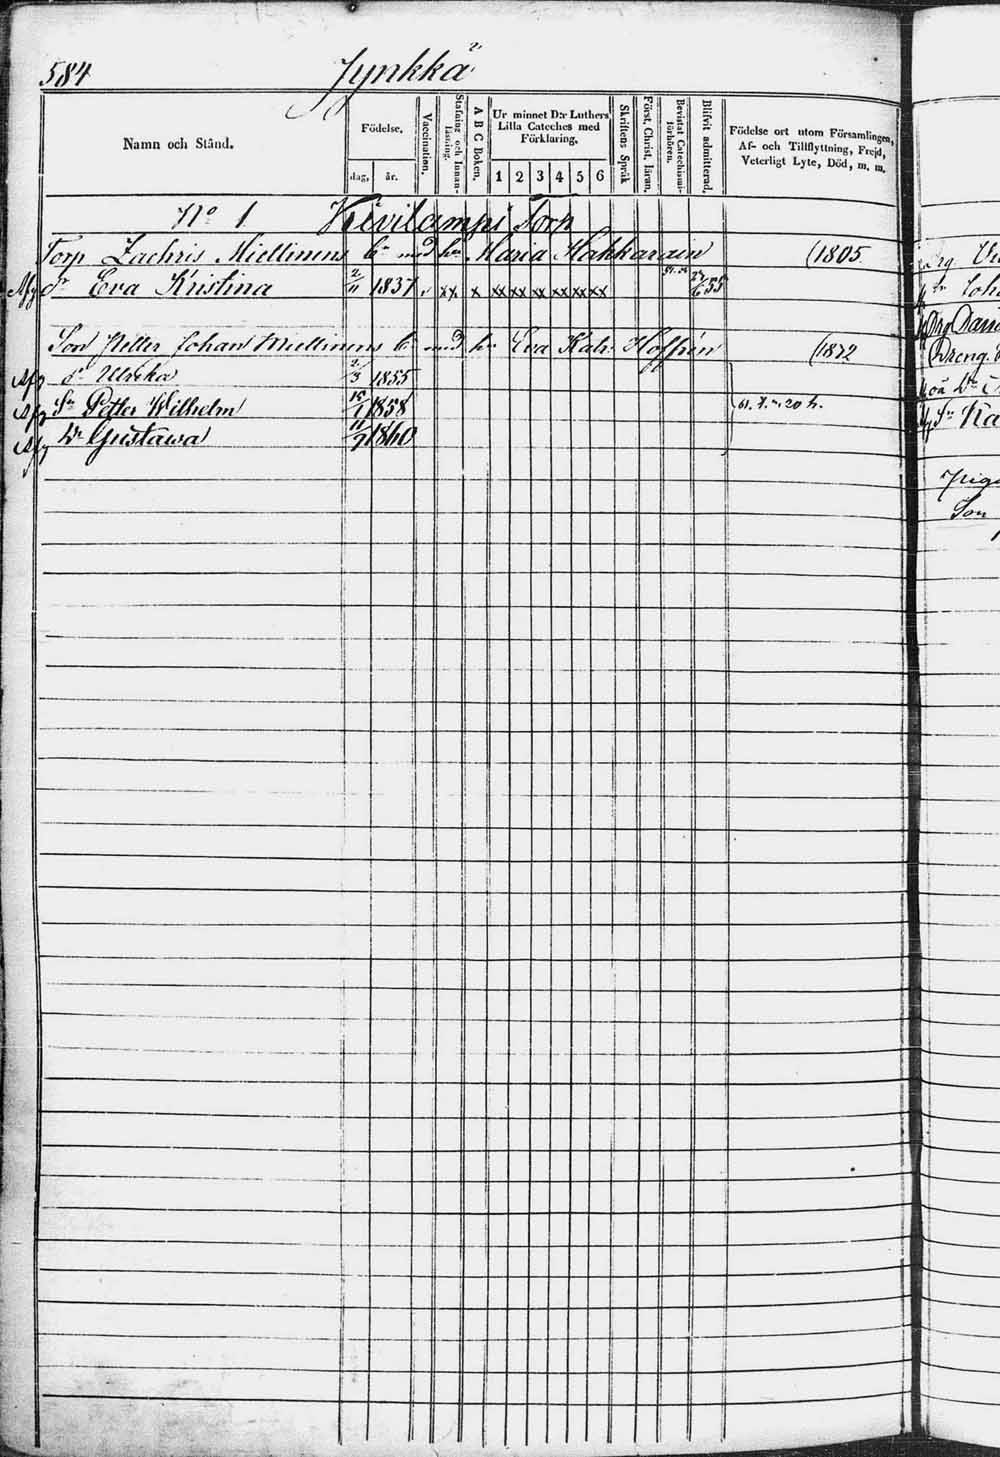 584 Jynkkä
Namn och Stånd.
Födelse.
dag, år.
Vaccination.
Stafning och Innan-läsning.
A B C Boken.
Ur minnet D:r Luthers Lilla Cateches med Förklaring.
1 2 3 4 5 6
Skriftens Språk
Först. Christ. läran.
Bevistat Catechismi-förhören.
Blifvit admitterad.
Födelse ort utom Församlingen, Af- och Tillflyttning, Frejd, Veterligt Lyte, Död, m. m.
No 1 Kivilampi Torp
Torp Zachris Miettinens bn med hu Maria Hakkarain (1805
dr Eva Kristina 2/11 1837 xx x xx xx xx xx xx xx 55
Son Petter Johan Miettinens bn med hu Eva Katr Hoffrén (1872
dr Ulrika 2/3 1855
Sn Petter Wilhelm 15/1 1858 61. 7. 20 h.
Dr Gustawa 11/7 1860